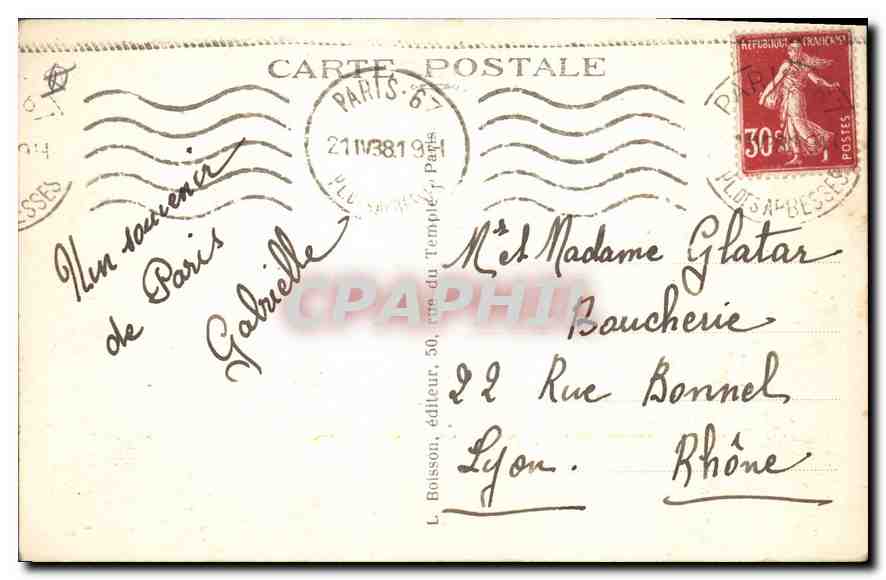 CARTE POSTALE
RÉPUBLIQUE FRANÇAISE
30c
POSTES
PARIS-67
21 IV 38.19H
PL. DES ABBESSES
Un souvenir
de Paris
Gabrielle
Mr et Madame Glatar
Boucherie
22 Rue Bonnel
Lyon. Rhône
L. Boisson, éditeur, 50, rue du Temple, Paris
CPAPHIL